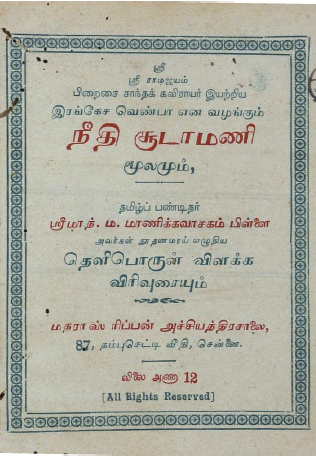 ஸ்ரீ
ஸ்ரீ ராமஜயம்
பிறைசை சாந்தக் கவிராயர் இயற்றிய
இரங்கேச வெண்பா என வழங்கும்
நீதி சூடாமணி
மூலமும்,
தமிழ்ப் பண்டிதர்
ஸ்ரீமாந். ம. மாணிக்கவாசகம் பிள்ளை
அவர்கள் நூதனமாய் எழுதிய
தெளிபொருள் விளக்க
விரிவுரையும்
மதராஸ் ரிப்பன் அச்சியந்திரசாலை,
87, தம்புசெட்டி வீதி, சென்னை.
விலை அணா 12
[All Rights Reserved]